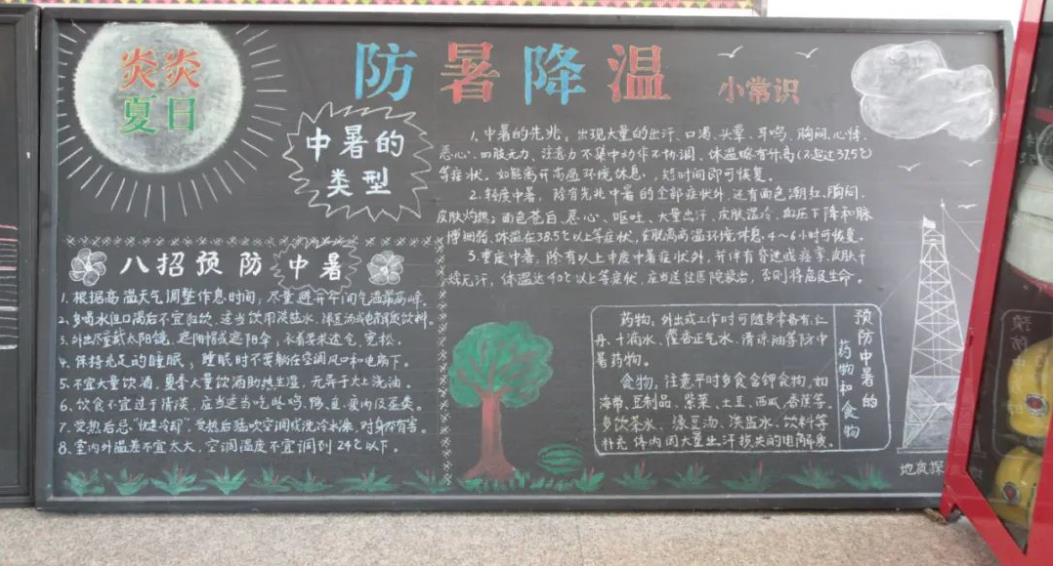 炎炎
夏日
防暑降温
小常识
中暑的
类型
1、中暑的先兆。出现大量的出汗、口渴、头晕、耳鸣、胸闷、心悸、
恶心、四肢无力、注意力不集中动作不协调、体温略有升高(不超过37.5℃)
等症状。如能离开高温环境休息，短时间即可恢复。
2、轻度中暑，除有先兆中暑的全部症状外，还有面色潮红、胸闷、
皮肤灼热；面色苍白、恶心、呕吐、大量出汗、皮肤湿冷、血压下降和脉
搏细弱、体温在38.5℃以上等症状，离高温环境休息、4～6小时可恢复。
3、重度中暑，除有以上中度中暑症状外，并伴有昏迷或痉挛，皮肤干
燥无汗，体温达40℃以上等症状，应当送往医院救治，否则将危及生命。
八招预防中暑
1、根据高温天气调整作息时间，尽量避开午间气温最高峰。
2、多喝水但口渴后不宜狂饮，适当饮用淡盐水、绿豆汤或电解质饮料。
3、外出应戴太阳镜，遮阳帽或遮阳伞，衣着要求透气、宽松。
4、保持充足的睡眠，睡眠时不要躺在空调风口和电扇下。
5、不宜大量饮酒，夏季大量饮酒助热生湿，无异于火上浇油。
6、饮食不宜过于清淡，应当适当吃些鸡、鸭、鱼、瘦肉及蛋类。
7、受热后忌“快速冷却”，受热后猛吹空调或洗冷水澡，对身体有害。
8、室内外温差不宜太大，空调温度不宜调到24℃以下。
药物：外出或工作时可随身常备有仁
丹、十滴水、藿香正气水、清凉油等防中
暑药物。
食物：注意平时多食含钾食物，如
海带、豆制品、紫菜、土豆、西瓜、香蕉等。
多饮茶水、绿豆汤、淡盐水、饮料等
补充体内因大量出汗损失的电解质。
预防中暑的
药物和食物
地质探